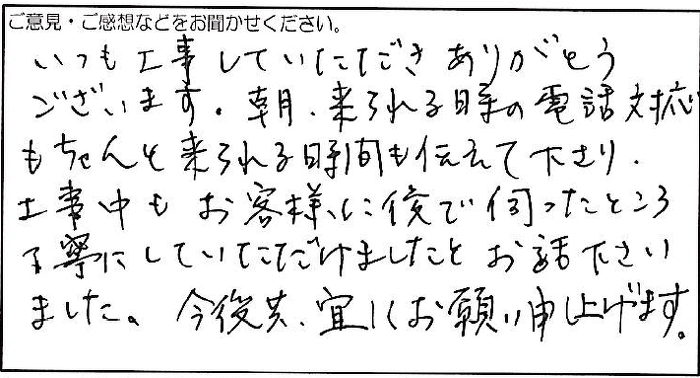 ご意見・ご感想などをお聞かせください。
いつも工事していただきありがとう
ございます。朝、来られる時の電話対応
もちゃんと来られる時間も伝えて下さり、
工事中もお客様に後で伺ったところ
丁寧にしていただけましたとお話下さい
ました。今後共、宜しくお願い申し上げます。